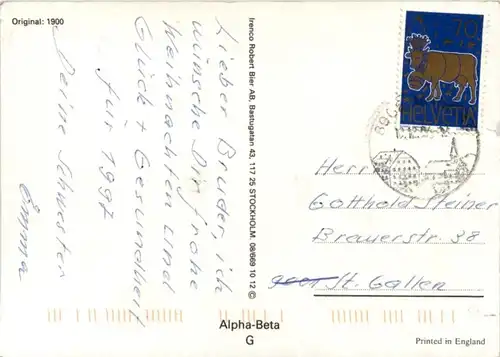 Original: 1900
Lieber Bruder, ich
wünsche Dir frohe
Weihnachten und
Glück + Gesundheit
für 1997
Deine Schwester
Emma
Irenco Robert Blen AB, Bastugatan 43, 117 25 STOCKHOLM. 08/669 10 12 ©
Alpha-Beta
G
70
HELVETIA
Herrn
Gotthold Steiner
Brauerstr. 38
St. Gallen
Printed in England